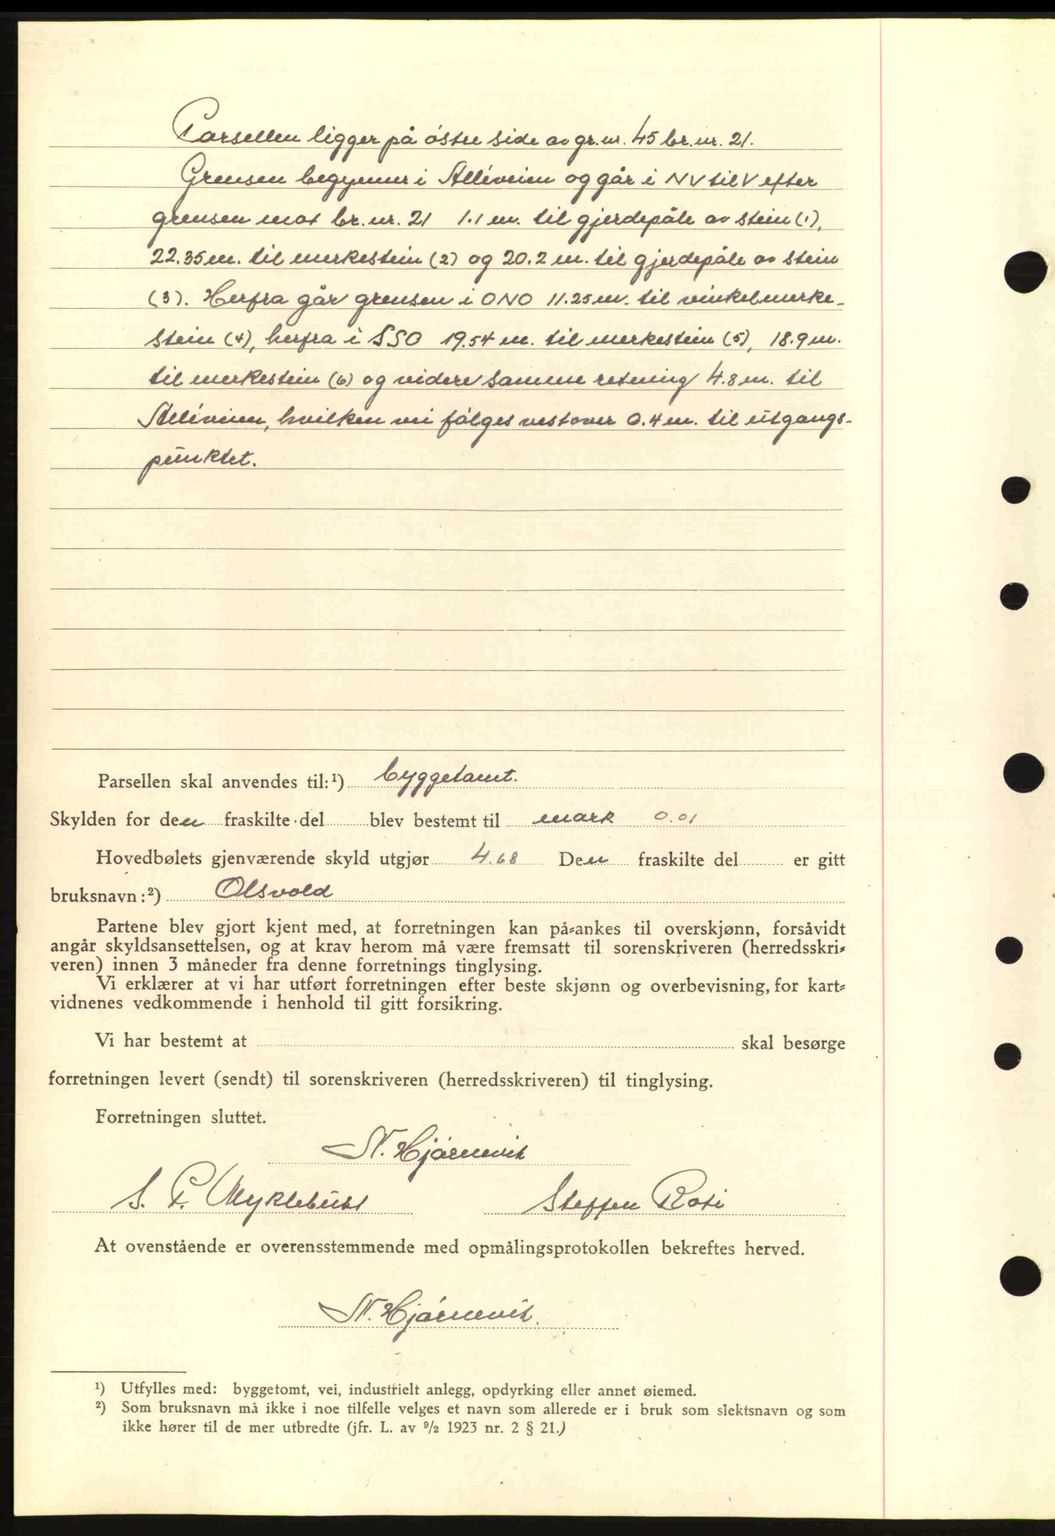 Parsellen ligger på östre side av gr.nr. 45 br.nr. 21.
Grensen begynner i Alléveien og går i NV til V efter
grensen mot br.nr. 21 1.1 m. til gjerdepåle av stein (1),
22.35 m. til merkestein (2) og 20.2 m. til gjerdepåle av stein
(3). Herfra går grensen i ONO 11.25 m. til vinkelmerke-
stein (4), herfra i SSO 19.54 m. til merkestein (5), 18.9 m.
til merkestein (6) og videre samme retning 4.8 m. til
Alléveien, hvilken vei fölges vestover 0.4 m. til utgangs-
punktet.
Parsellen skal anvendes til:¹) byggetomt.
Skylden for den fraskilte del blev bestemt til mark 0.01
Hovedbølets gjenværende skyld utgjør 4.68 Den fraskilte del er gitt
bruksnavn:²) Olsvold
Partene blev gjort kjent med, at forretningen kan på-ankes til overskjønn, forsåvidt
angår skyldsansettelsen, og at krav herom må være fremsatt til sorenskriveren (herredsskri-
veren) innen 3 måneder fra denne forretnings tinglysing.
Vi erklærer at vi har utført forretningen efter beste skjønn og overbevisning, for kart-
vidnenes vedkommende i henhold til gitt forsikring.
Vi har bestemt at skal besørge
forretningen levert (sendt) til sorenskriveren (herredsskriveren) til tinglysing.
Forretningen sluttet.
N. Hjörnevik
S. P. Myklebust Steffen Roti
At ovenstående er overensstemmende med opmålingsprotokollen bekreftes herved.
N. Hjörnevik.
¹) Utfylles med: byggetomt, vei, industrielt anlegg, opdyrking eller annet øiemed.
²) Som bruksnavn må ikke i noe tilfelle velges et navn som allerede er i bruk som slektsnavn og som
ikke hører til de mer utbredte (jfr. L. av ⁹/₂ 1923 nr. 2 § 21.)